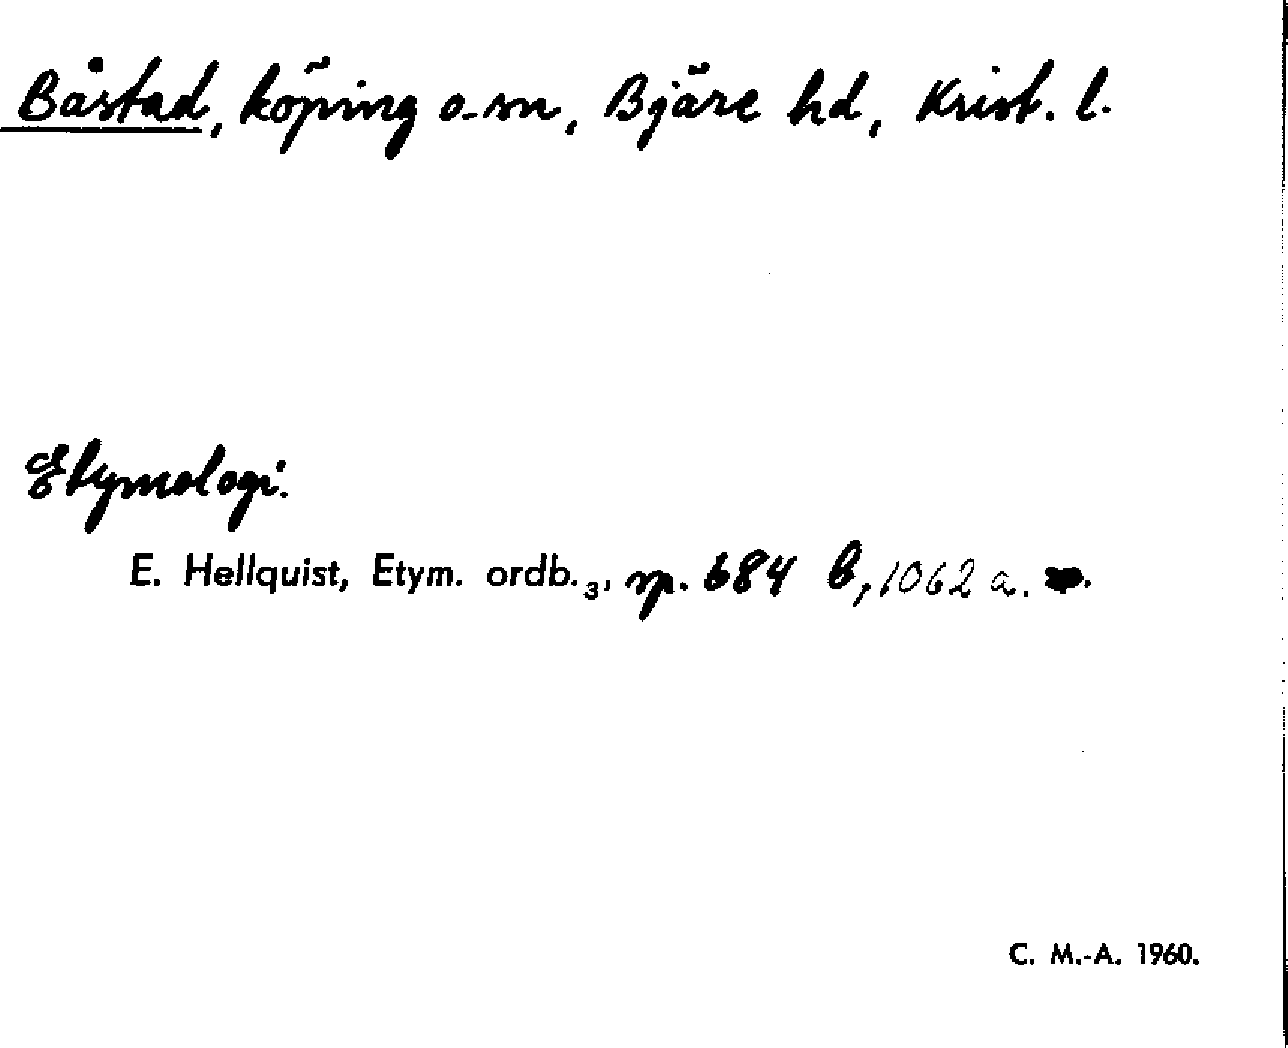 Båstad, köping o. sn, Bjäre hd, Krist. l.
Etymologi.
E. Hellquist, Etym. ordb.₃, sp. 684 b, 1062 a.
C. M.-A. 1960.